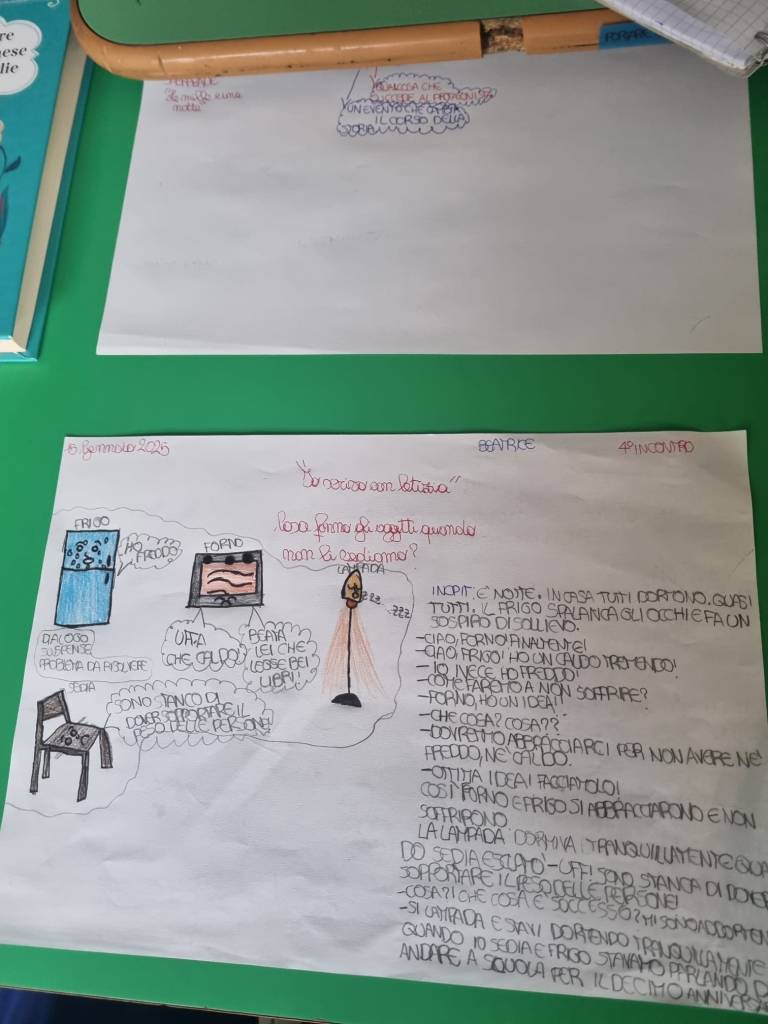 re
nese
lie
PORTARE
Le mille e una
notte
QUALCOSA CHE
SUCCEDE AI PROTAGONISTI
UN EVENTO CHE
IL CORSO DELLA
STORIA
15 Gennaio 2025
BEATRICE
4° INCONTRO
"Io scrivo con Letizia"
Cosa fanno gli oggetti quando
non li vediamo?
FRIGO
HO
FREDDO
FORNO
LAMPADA
ZZZ
ZZZ
UFFA
CHE CALDO!
BEATA
LEI CHE
LEGGE BEI
LIBRI!
DIALOGO
SUSPENSE
PROBLEMA DA RISOLVERE
SEDIA
SONO STANCO DI
DOVER SOPPORTARE IL
PESO DELLE PERSONE!
INCIPIT: È NOTTE. IN CASA TUTTI DORMONO. QUASI
TUTTI. IL FRIGO SPALANCA GLI OCCHI E FA UN
SOSPIRO DI SOLLIEVO.
-CIAO, FORNO! FINALMENTE!
-CIAO, FRIGO! HO UN CALDO TREMENDO!
-IO, INVECE, HO FREDDO!
-COME FAREMO A NON SOFFRIRE?
-FORNO, HO UN IDEA!!
-CHE COSA? COSA??
-DOVREMMO ABBRACCIARCI PER NON AVERE NÉ
FREDDO, NÉ CALDO.
-OTTIMA IDEA! FACCIAMOLO!
COSÌ FORNO E FRIGO SI ABBRACCIARONO E NON
SOFFRIRONO.
LA LAMPADA DORMIVA TRANQUILLAMENTE QUA
DO SEDIA ESCLAMÒ -UFF! SONO STANCA DI DOVER
SOPPORTARE IL PESO DELLE PERSONE!
-COSA?! CHE COSA È SUCCESSO? MI SONO ADDORMEN
-SI LAMPADA E STAVI DORMENDO TRANQUILLAMENTE
QUANDO IO SEDIA E FRIGO STAVAMO PARLANDO D
ANDARE A SCUOLA PER IL DECIMO ANNIVERSA